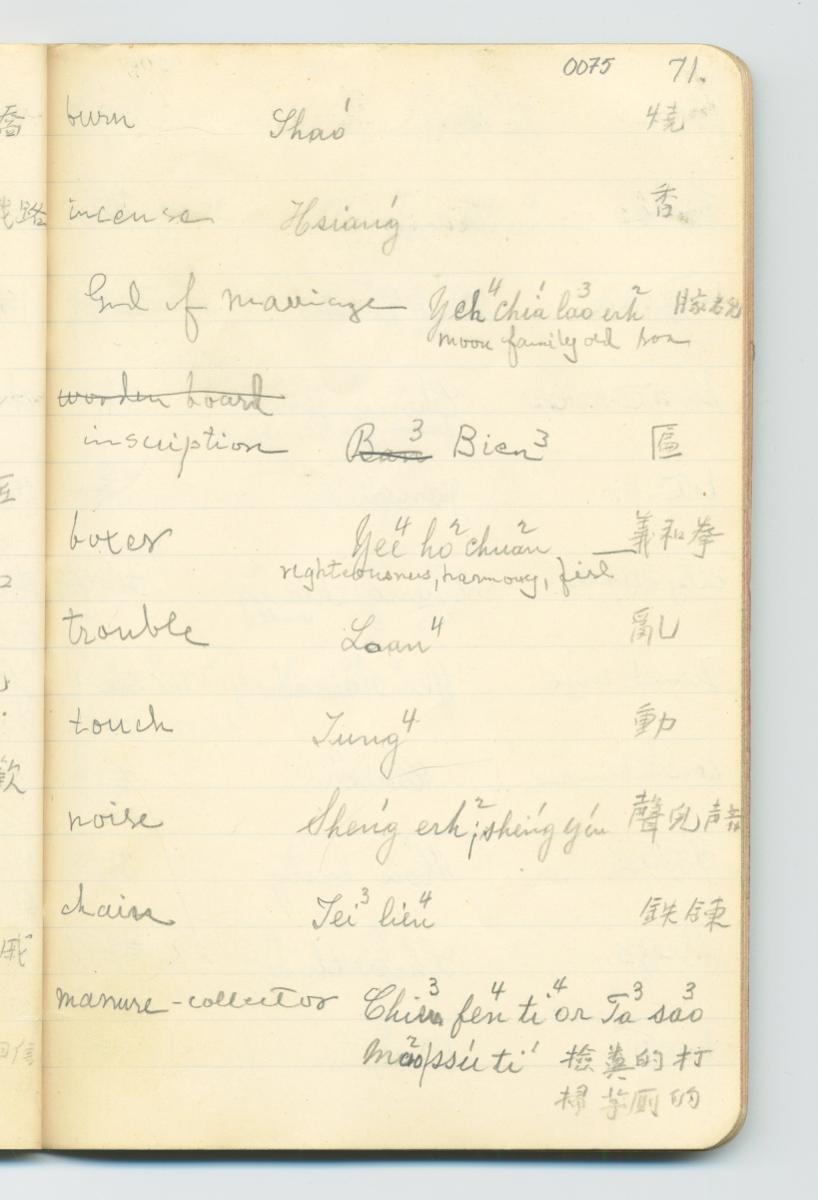 0075 71.
burn Shao¹ 燒
incense Hsiang¹ 香
God of marriage Yeh⁴ chia¹ lao³ erh² 月家老兒
moon family old son
wooden board
inscription Ban³ Bien³ 匾
boxer Yee⁴ ho² chuan² 義和拳
righteousness, harmony, fist
trouble Loan⁴ 亂
touch Tung⁴ 動
noise Sheng¹ erh²; sheng¹ yin¹ 聲兒声音
chain Tei³ lien⁴ 鉄鍊
manure-collector Chien³ fen⁴ ti⁴ or Ta³ sao³
mao² ssu¹ ti¹ 撿糞的打
掃茅厠的